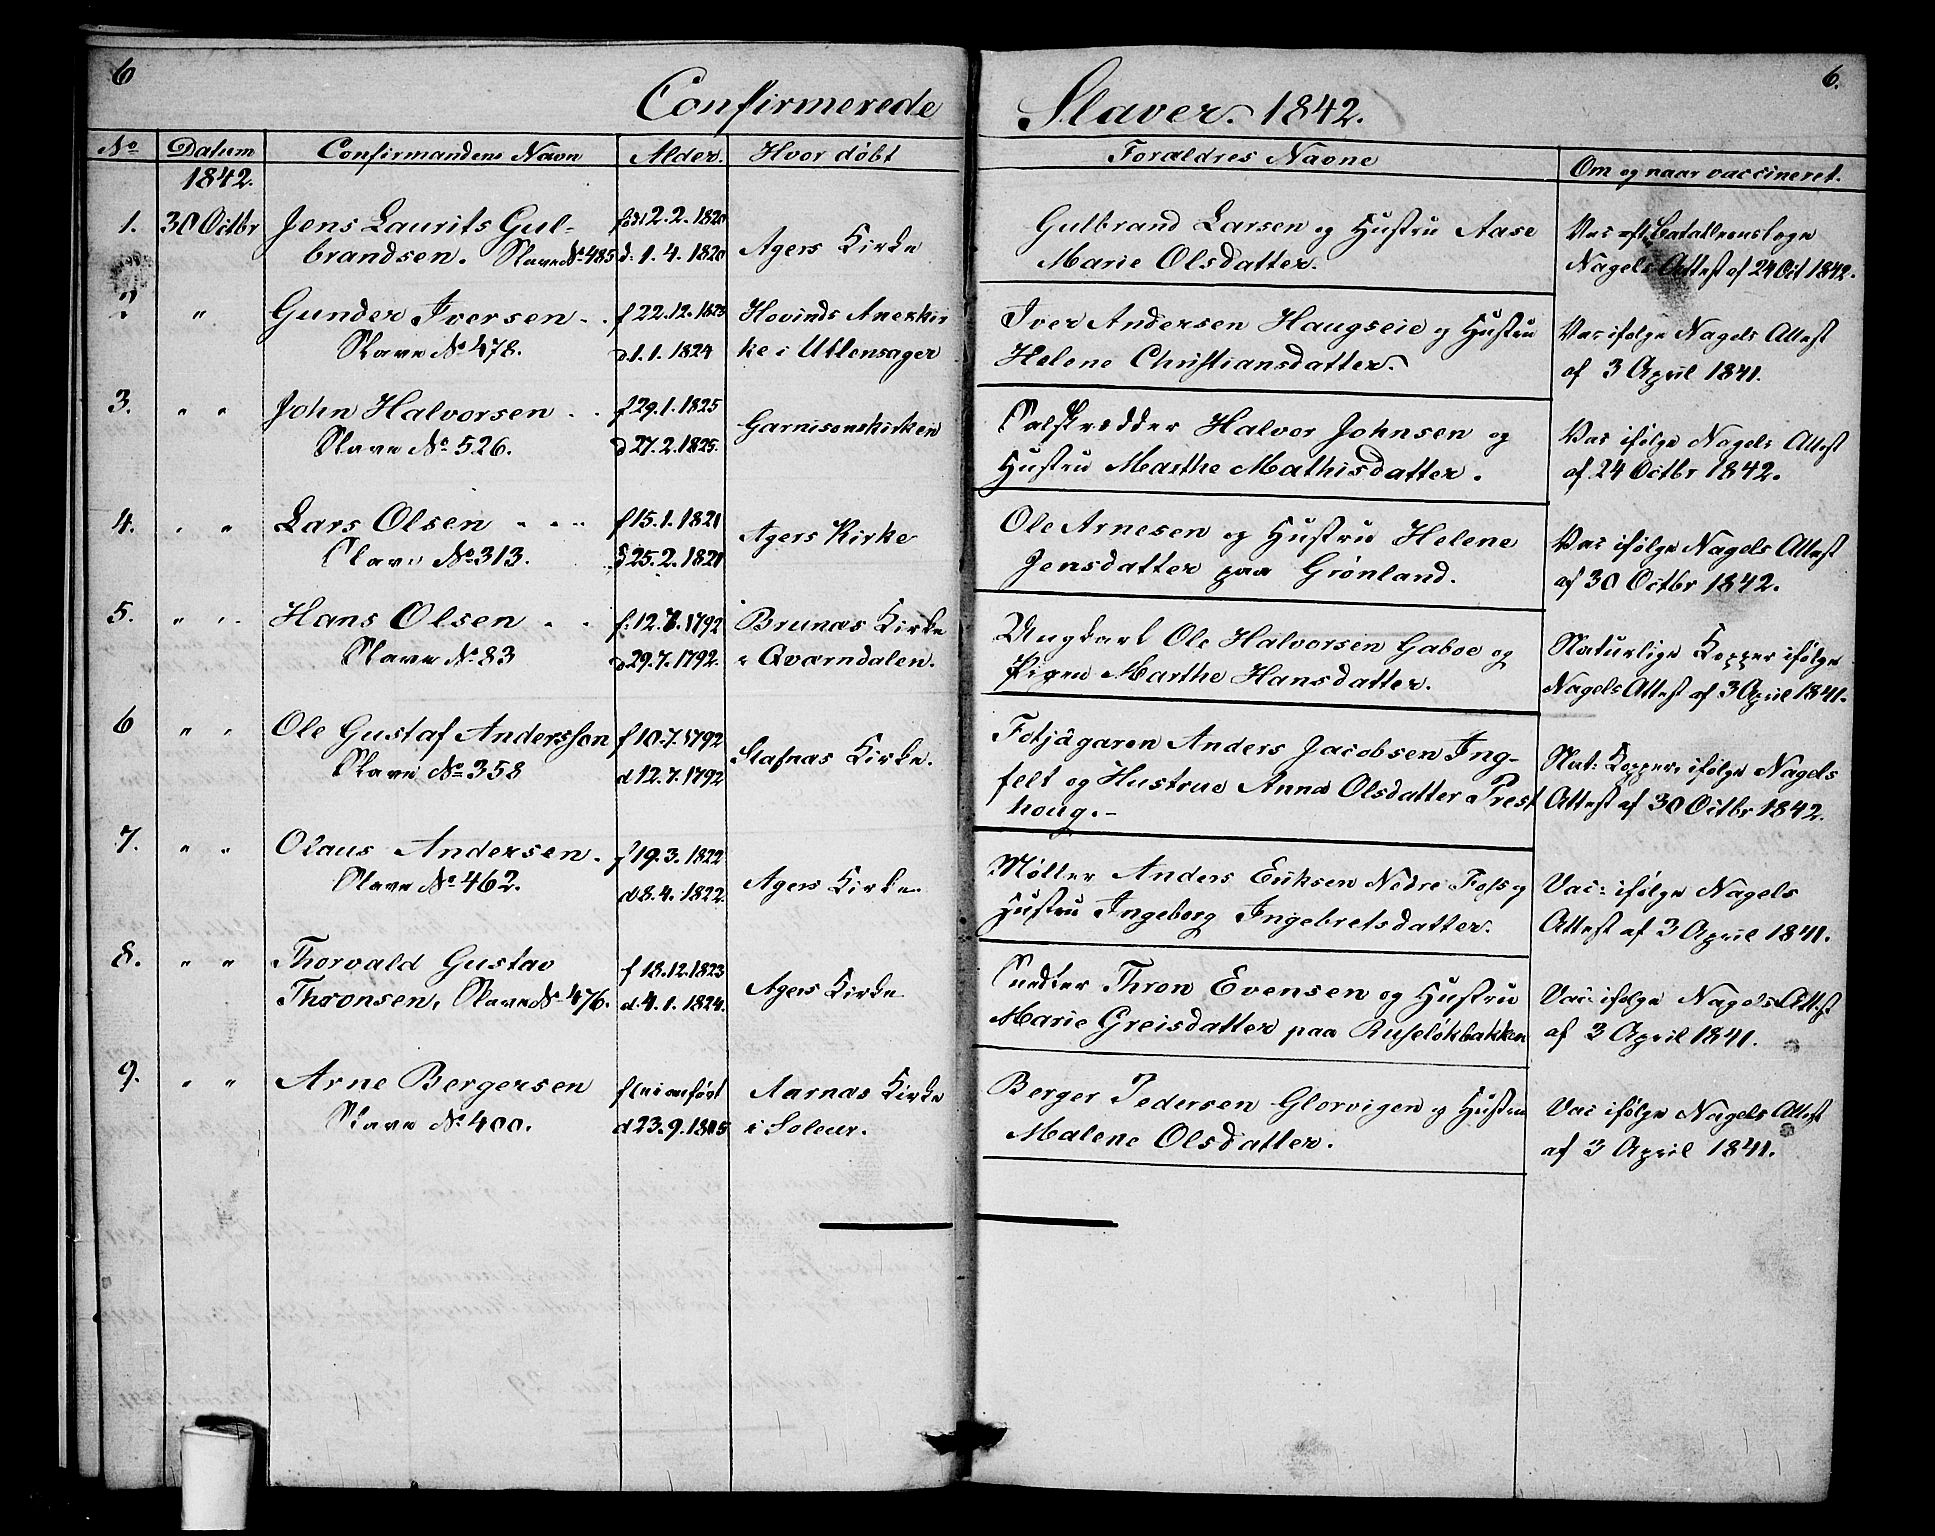 6
6.
Confirmerede Slaver. 1842.
No Datum Confirmandens Navn Alder. Hvor döbt Forældres Navne Om og naar vaccineret.
1842.
1. 30 Octbr Jens Laurits Gul- født 2.2.1820 Agers Kirke Gulbrand Larsen og Hustru Aase Vac eft. Bataillonslæge
brandsen. Slave No 485 d. 1.4.1820 Marie Olsdatter. Nagels Attest af 24 Oct 1842.
2. " Gunder Iversen f 22.12.1823 Hovinds Anexkir Iver Andersen Haugseie og Hustru Vac ifølge Nagels Attest
Slave No 478. d 1.1.1824 ke i Ullensager Helene Christiansdatter. af 3 April 1841.
3. " " John Halvorsen f 29.1.1825 Garnisonskirken Halvor Johnsen og Vac ifølge Nagels Attest
Slave No 526. d 27.2.1825. Hustru Marthe Mathisdatter. af 24 Octbr 1842.
4. " " Lars Olsen f 15.1.1821 Agers Kirke Ole Arnesen og Hustru Helene Vac ifølge Nagels Attest
Slave No 313. d 25.2.1821 Jensdatter paa Grønland. af 30 Octbr 1842.
5. " " Hans Olsen f. 12.7.1792 Brunæs Kirke Ungkarl Ole Halvorsen Gaboe og Naturlige Kopper ifølge
Slave No 83 d 29.7.1792. i Qværndalen. Pigen Marthe Hansdatter. Nagels Attest af 3 April 1841.
6 " " Ole Gustaf Andersson f 10.7.1792 Stafnæs Kirke. Fotjägaren Anders Jacobsen Ing- Nat: Kopper, ifølge Nagels
Slave No 358 d 12.7.1792 felt og Hustrue Anna Olsdatter Prest Attest af 30 Octbr 1842.
houg.-
7. " " Olaus Andersen. f 19.3.1822 Agers Kirke. Møller Anders Eriksen Nedre Foss og Vac: ifølge Nagels
Slave No 462. d 8.4.1822. Hustru Ingeborg Ingebretsdatter. Attest af 3 April 1841.
8. " " Thorvald Gustav f 18.12.1823 Agers Kirke Thron Evensen og Hustru Vac: ifølge Nagels Attest
Thronsen, Slave No 476. d. 4.1.1824. Marie Greisdatter paa Ruseløkbakken af 3 April 1841.
9. " " Arne Bergersen f ei anført Aarnæs Kirke Berger Pedersen Glorvigen og Hustru Vac ifølge Nagels Attest
Slave No 400. d 23.9.1805 i Soleur. Malene Olsdatter. af 3 April 1841.